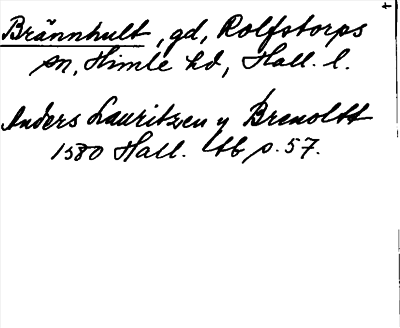 Brännhult, gd, Rolfstorps
sn, Himle hd, Hall. l.
Anders Lauritzen y Brenoltt
1580 Hall. Ltb p. 57.